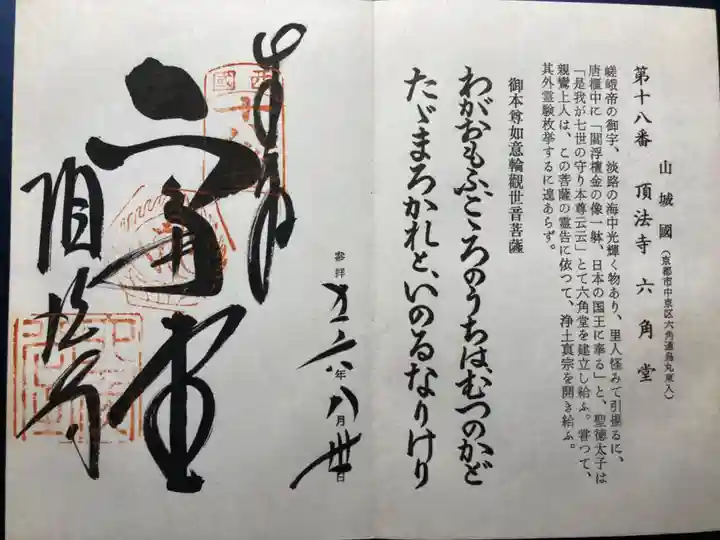 第十八番
山城國(京都市中京区六角通烏丸東入)
頂法寺 六角堂
嵯峨帝の御宇、淡路の海中光輝く物あり、里人怪みて引揚るに、
唐櫃中に「閻浮檀金の像一躰、日本の国王に奉る」と、聖徳太子は
「是我が七世の守り本尊云云」とて六角堂を建立し給ふ。嘗つて、
親鸞上人は、この菩薩の霊告に依つて、浄土真宗を開き給ふ。
其外霊験枚挙するに遑あらず。
御本尊如意輪觀世音菩薩
わがおもふ、こゝろのうちは、むつのかど
たゞまろかれと、いのるなりけり
參拝
年八月
日
六角堂
頂法寺
西國